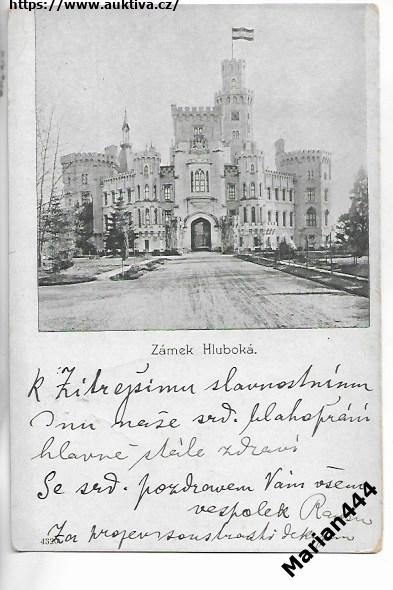 https://www.auktiva.cz/
Zámek Hluboká.
K Zítrejšimu slavnostnímu
Dnu naše srd. blahopřání
hlavně stále zdraví
Se srd. pozdravem Vám všem
vespolek
Za projev soustrasti
Marian444